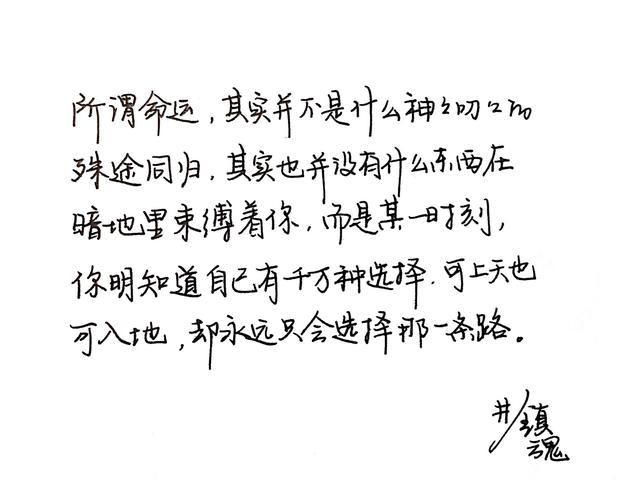 所谓命运,其实并不是什么神神叨叨的
殊途同归,其实也并没有什么东西在
暗地里束缚着你,而是某一时刻,
你明知道自己有千万种选择.可上天也
可入地,却永远只会选择那一条路。
#镇
魂